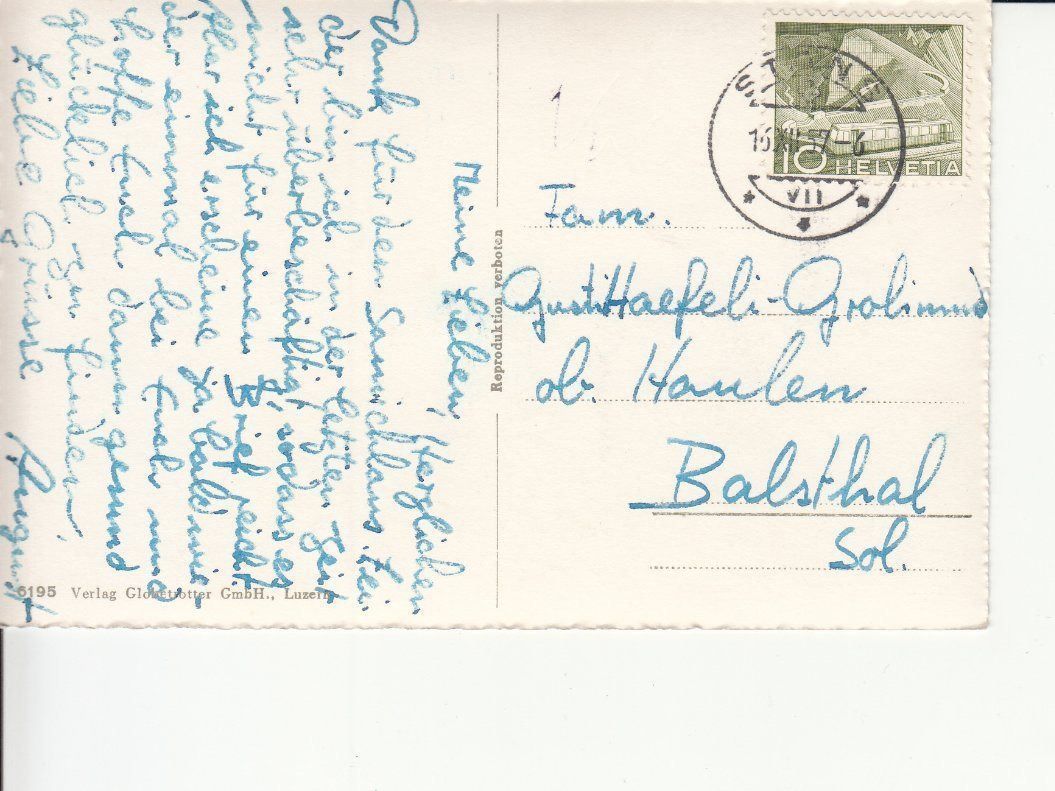 Meine Lieben, Herzlichen
Dank für den Samichlaus. Lei-
der bin ich in der letzten Zeit
sehr überbeschäftigt, sodass es
nicht für einen Brief reicht.
Aber ich erscheine ja bald wie-
der einmal bei Euch und
hoffe Euch dann gesund
glücklich zu finden.
Liebe Grüsse
August
6195 Verlag Globetrotter GmbH., Luzern
Reproduktion verboten
STANS
16.XII.57-6
VII
10 HELVETIA
Fam.
Gusti Haefeli-Grolimund
ob. Haulen
Balsthal
Sol.